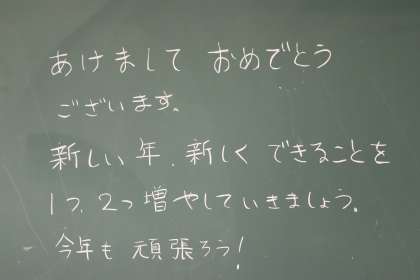 あけまして おめでとう
ございます。
新しい年、新しく できることを
1つ、2つ増やしていきましょう。
今年も 頑張ろう!